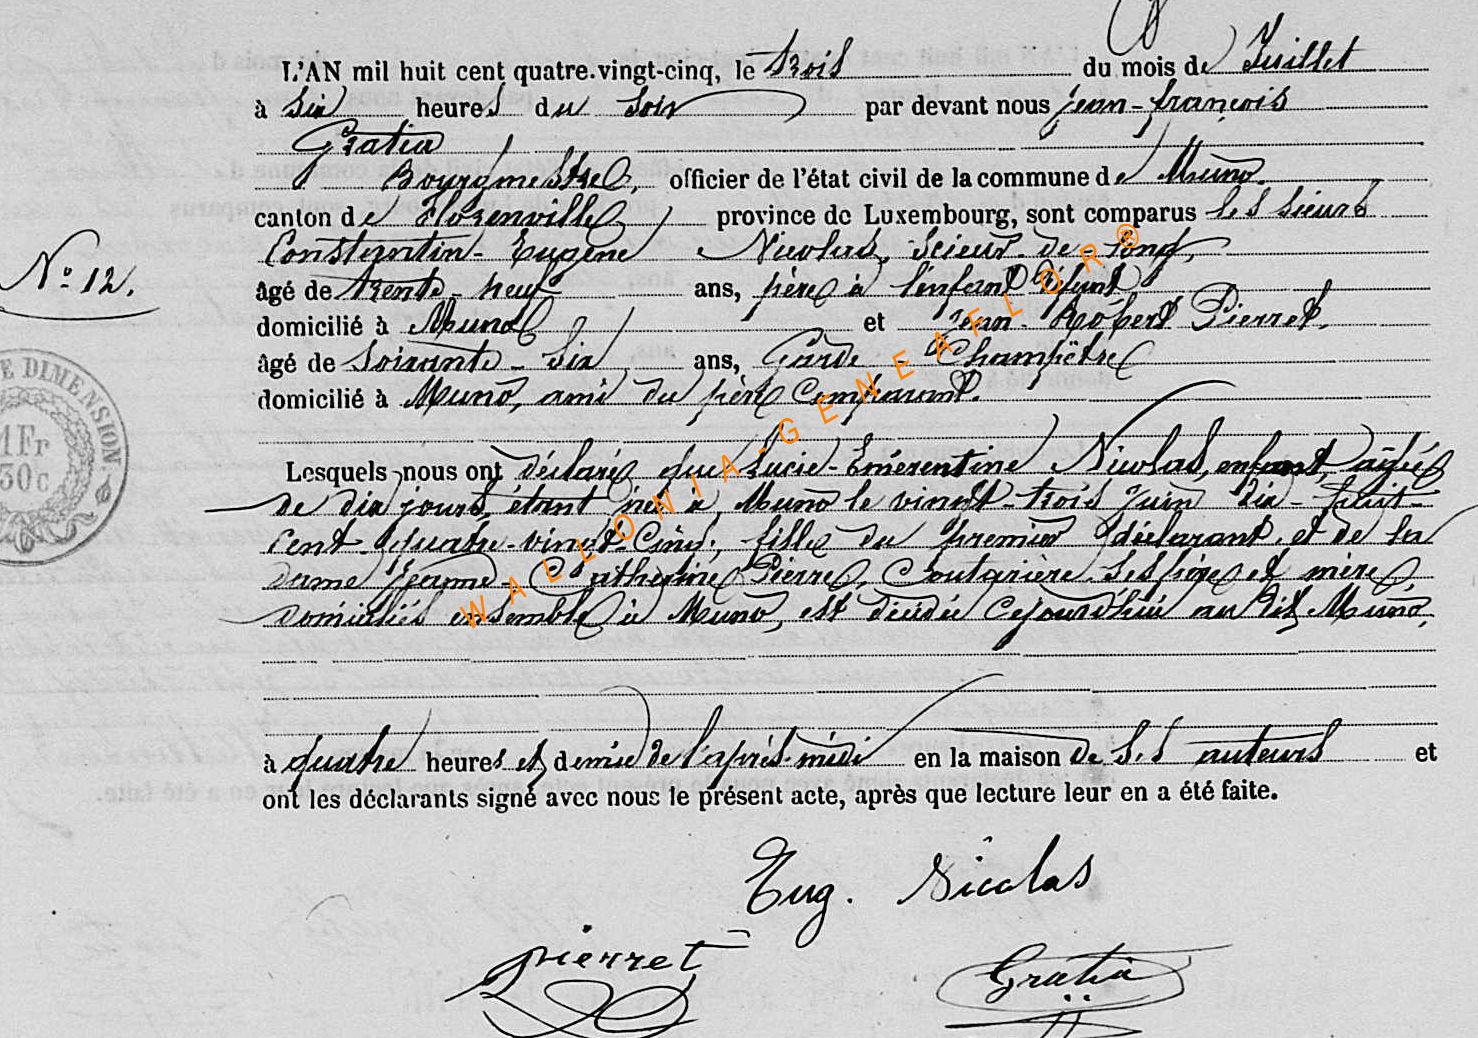 L'AN mil huit cent quatre-vingt-cinq, le trois du mois de Juillet
à six heures du soir par devant nous Jean-françois
Gratia
Bourgmestre, officier de l'état civil de la commune de Muno.
canton de Florenville province de Luxembourg, sont comparus les sieurs
Constantin-Eugène Nicolas, scieur-de-long,
N° 12.
âgé de trente-neuf ans, père à l'enfant défunt
domicilié à Muno et Jean-Robert Pierret,
âgé de soixante-six ans, Garde-Champêtre
domicilié à Muno, ami du père Comparant.
Lesquels nous ont déclaré que Lucie-Emérentine Nicolas, enfant, âgée
de dix jours, étant née à Muno le vingt-trois Juin dix-huit-
cent-quatre-vingt-Cinq, fille du premier déclarant, et de la
dame Jeanne-Catherine Pierre, Couturière, ses père et mère,
domiciliés ensemble à Muno, est décédée cejourd'hui au dit Muno,
à quatre heures et demie de l'après-midi en la maison de ses auteurs et
ont les déclarants signé avec nous le présent acte, après que lecture leur en a été faite.
Eug. Nicolas
pierret
Gratia
E DIMENSION.
1 Fr
30 c
WALLONIA-GENEAFLOR®